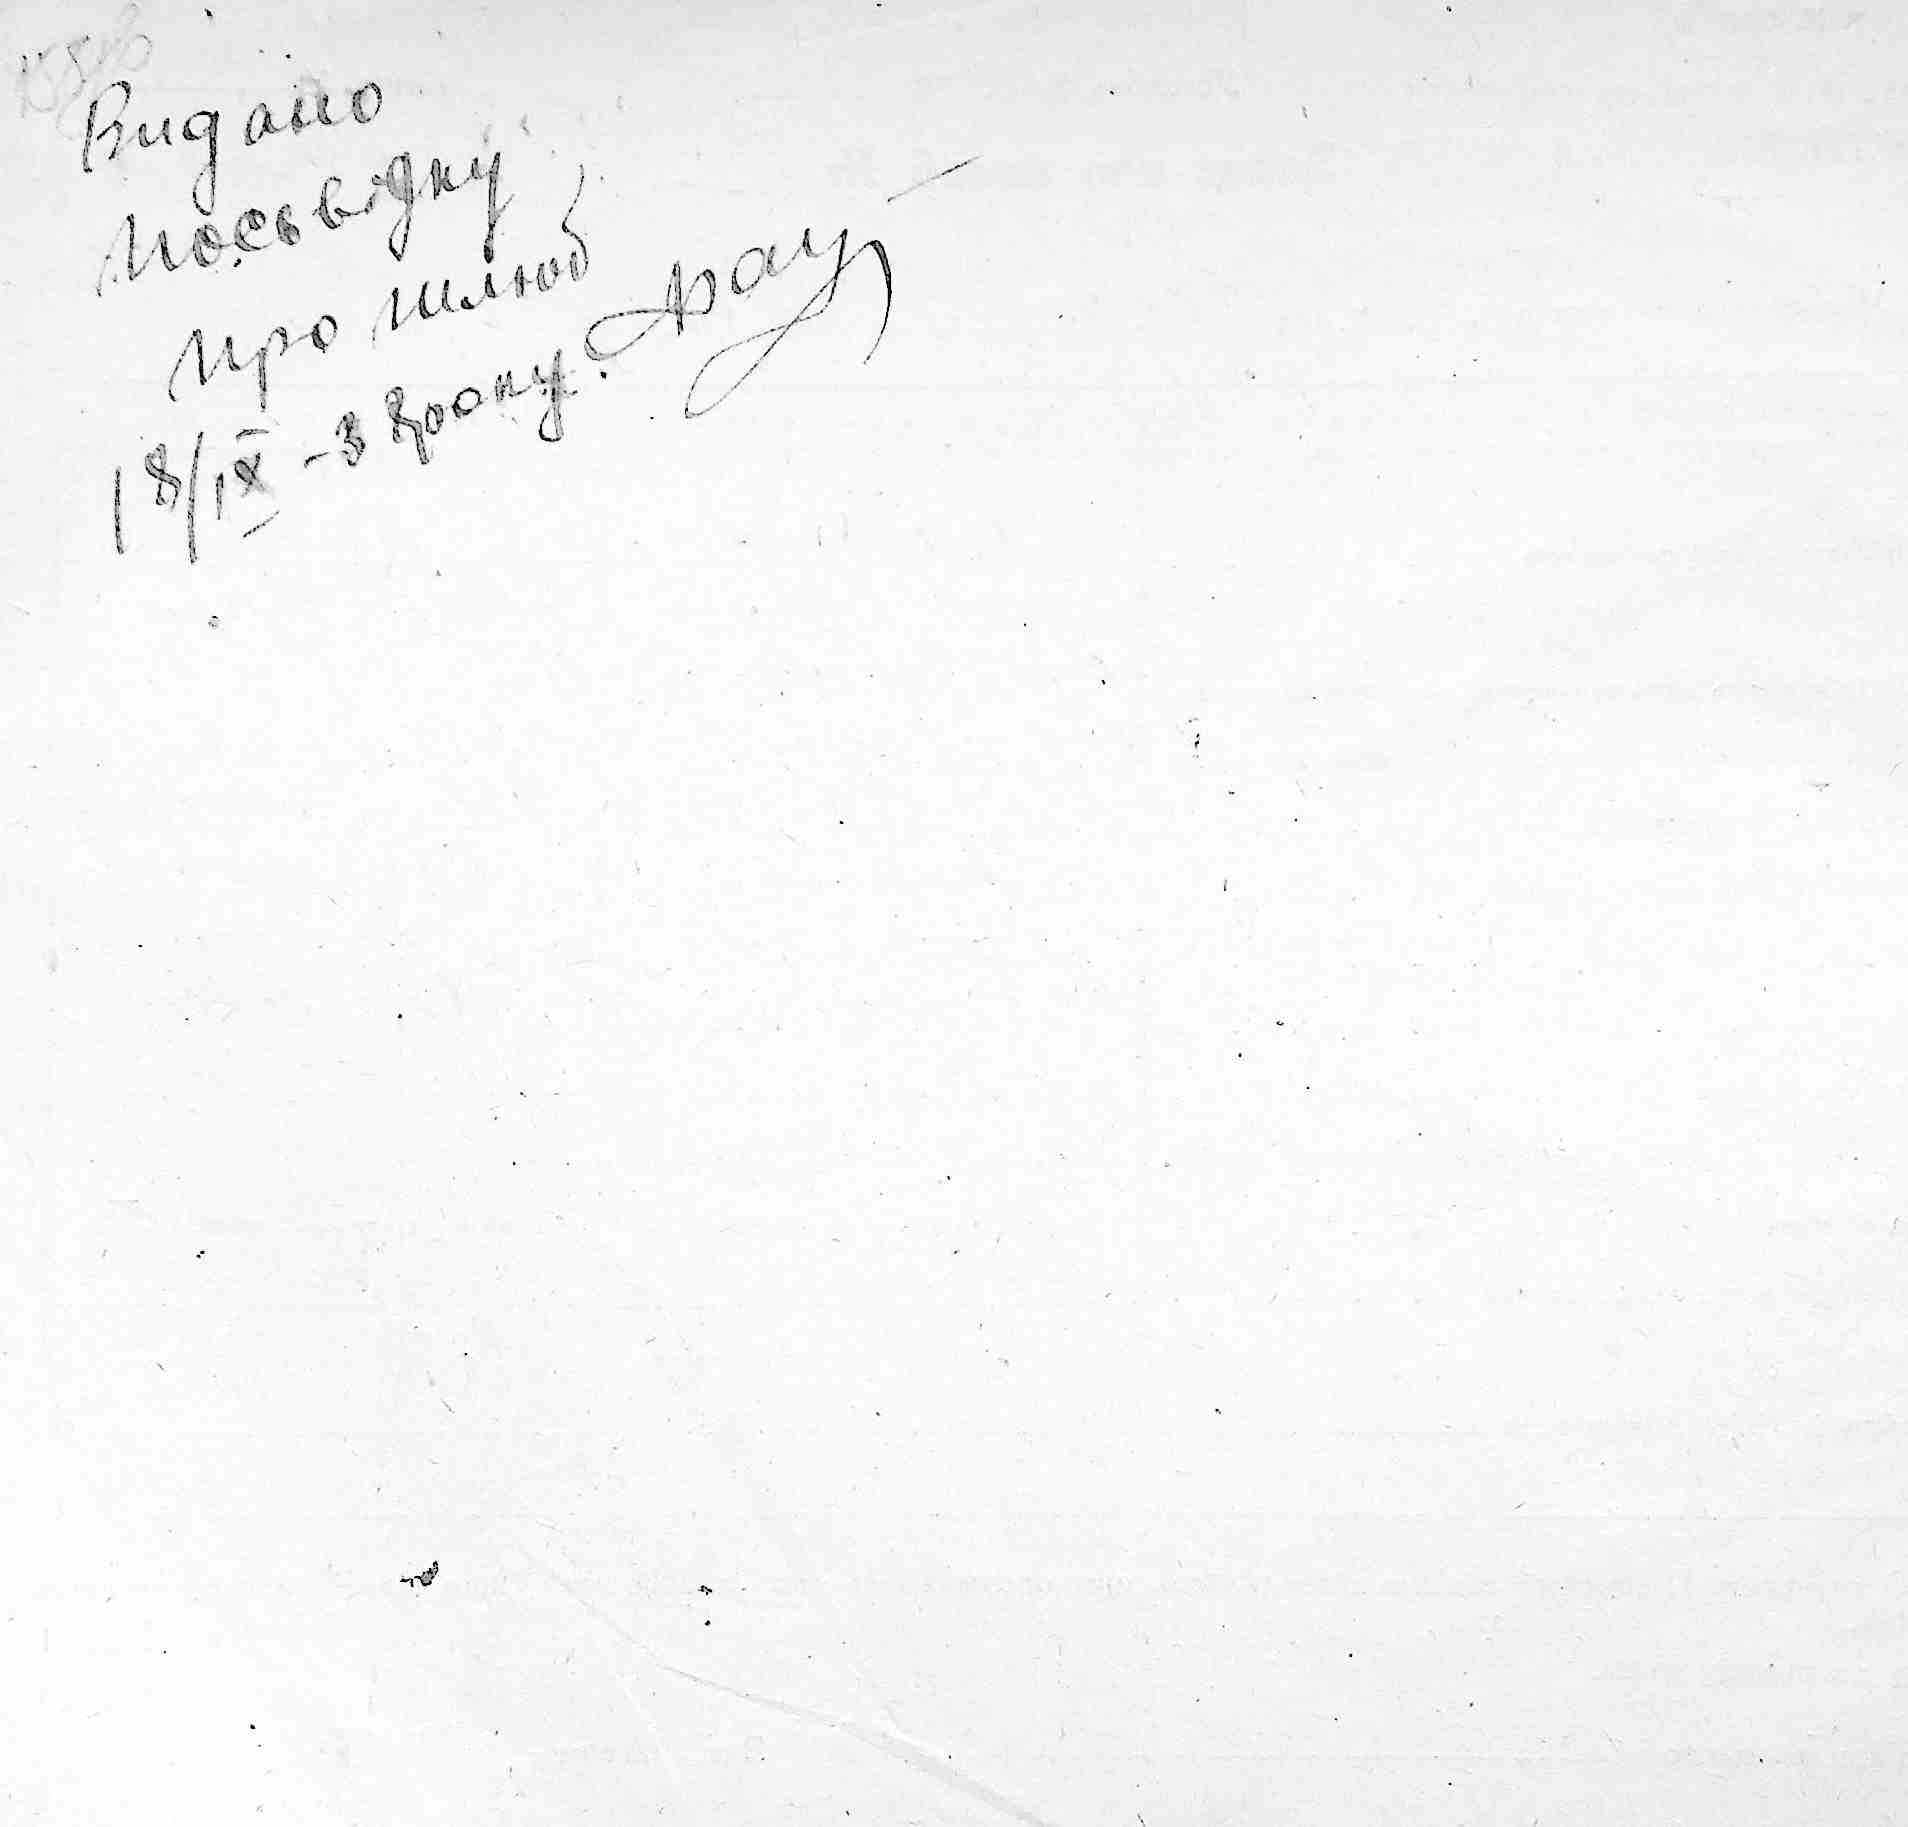 Видано
посьвідку
про шлюб
18/IX - 33 року.